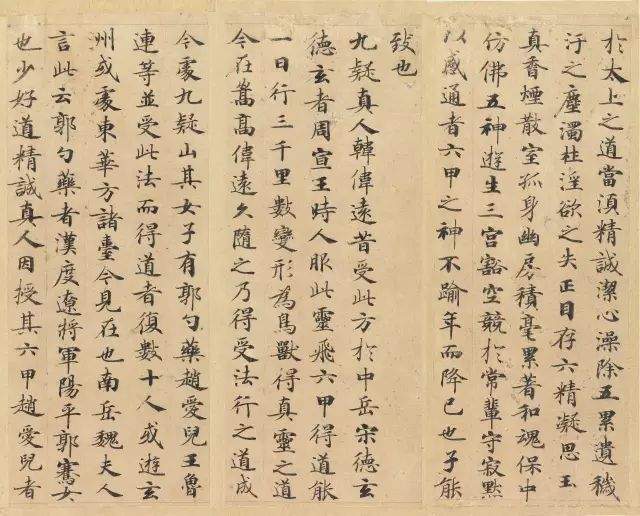 於太上之道當須精誠潔心澡除五累遺穢
汙之塵濁杜淫欲之失正目存六精凝思玉
真香煙散室孤身幽房積毫累著和魂保中
仿佛五神遊生三宮豁空競於常輩守寂默
以感通者六甲之神不踰年而降已也子能
致也
九疑真人韓偉遠昔受此方於中岳宋德玄
德玄者周宣王時人服此靈飛六甲得道能
一日行三千里數變形為鳥獸得真靈之道
今在嵩高偉遠久隨之乃得受法行之道成
今處九疑山其女子有郭勺藥趙愛兒王魯
連等並受此法而得道者復數十人或遊玄
州或處東華方諸臺今見在也南岳魏夫人
言此云郭勺藥者漢度遼將軍陽平郭騫女
也少好道精誠真人因授其六甲趙愛兒者